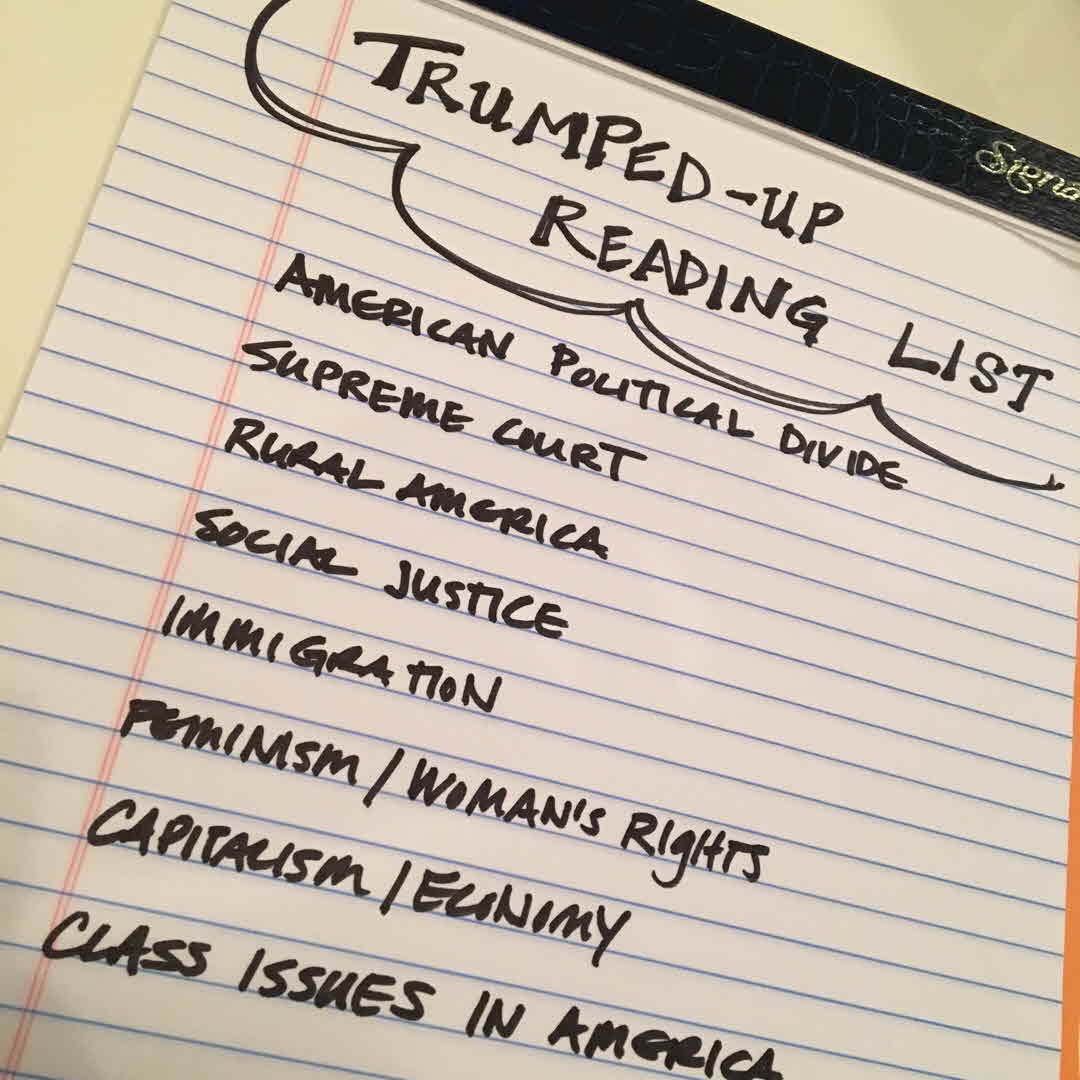 Signa
TRUMPED-UP
READING LIST
AMERICAN POLITICAL DIVIDE
SUPREME COURT
RURAL AMERICA
SOCIAL JUSTICE
IMMIGRATION
FEMINISM/WOMAN'S RIgHTS
CAPITALISM/ECONOMY
CLASS ISSUES IN AMERICA